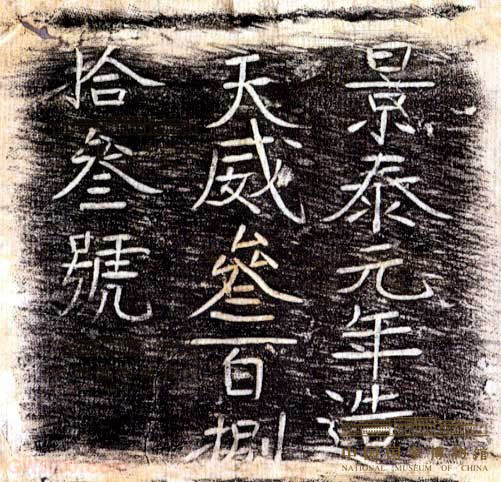 景泰元年造
天威叁百捌
拾叁號
中国国家博物馆
NATIONAL MUSEUM OF CHINA